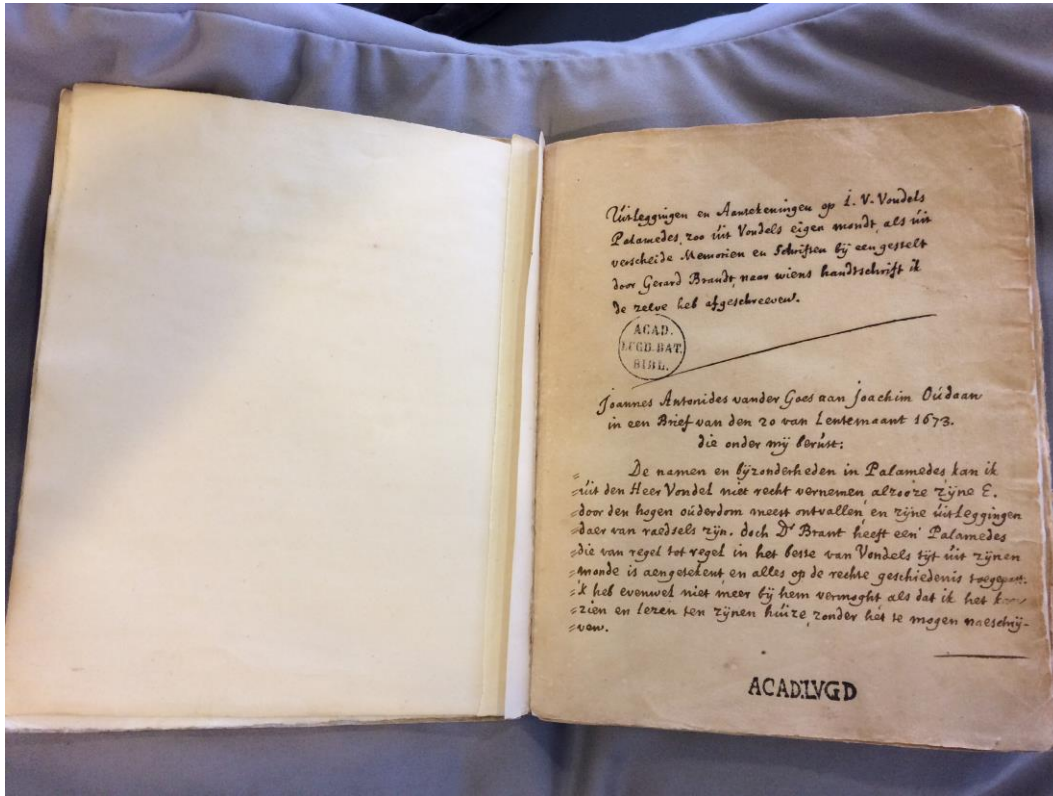 Uitleggingen en Aantekeningen op I. V. Vondels
Palamedes, zoo uit Vondels eigen mondt, als uit
verscheide Memorien en Schriften bij een gestelt
door Gerard Brandt, naar wiens handtschrift ik
de zelve heb afgeschreeven.
ACAD.
LUGD. BAT.
BIBL.
Joannes Antonides vander Goes aan Joachim Oúdaan
in een Brief van den 20 van Lentemaant 1673.
die onder mij berúst:
De namen en bijzonderheden in Palamedes kan ik
úit den Heer Vondel niet recht vernemen, alzooze zijne E.
door den hogen oúderdom meest ontvallen, en zijne úitleggingen
daer van raedsels zijn. doch Dr Brant heeft een Palamedes
die van regel tot regel in het beste van Vondels tijt úit zijnen
monde is aengetekent, en alles op de rechte geschiedenis toegepast.
ik heb evenwel niet meer bij hem vermoght als dat ik het
zien en lezen ten zijnen húize, zonder het te mogen naeschrij-
ven.
ACAD.LVGD